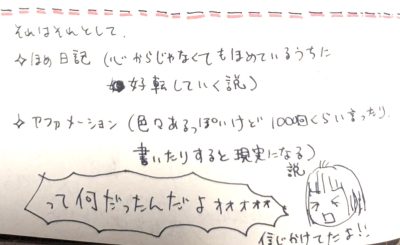 それはそれとして、
☆ほめ日記（心からじゃなくてもほめているうちに
好転していく説）
☆アファメーション（色々あるっぽいけど1000回くらい言ったり
書いたりすると現実になる）
説
って何だったんだよオオオオオ
信じかけてたよ!!